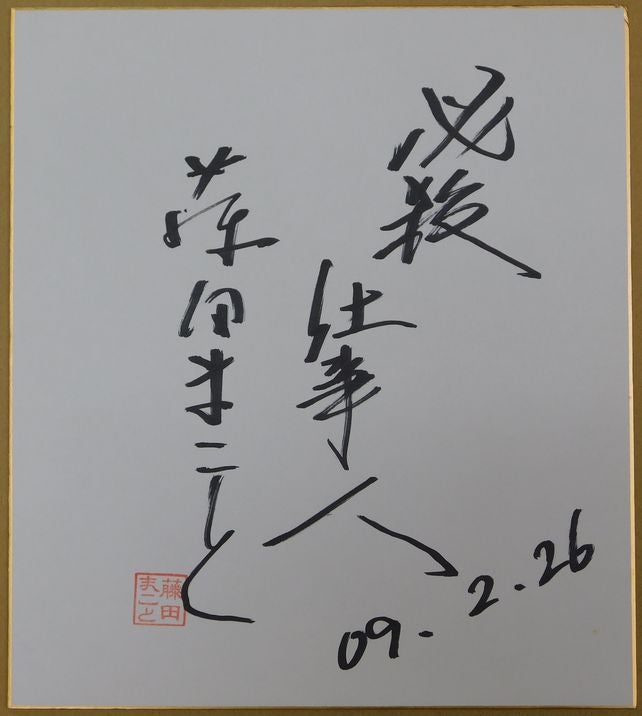 必殺
仕事人
藤田まこと
09.2.26
藤田
まこと